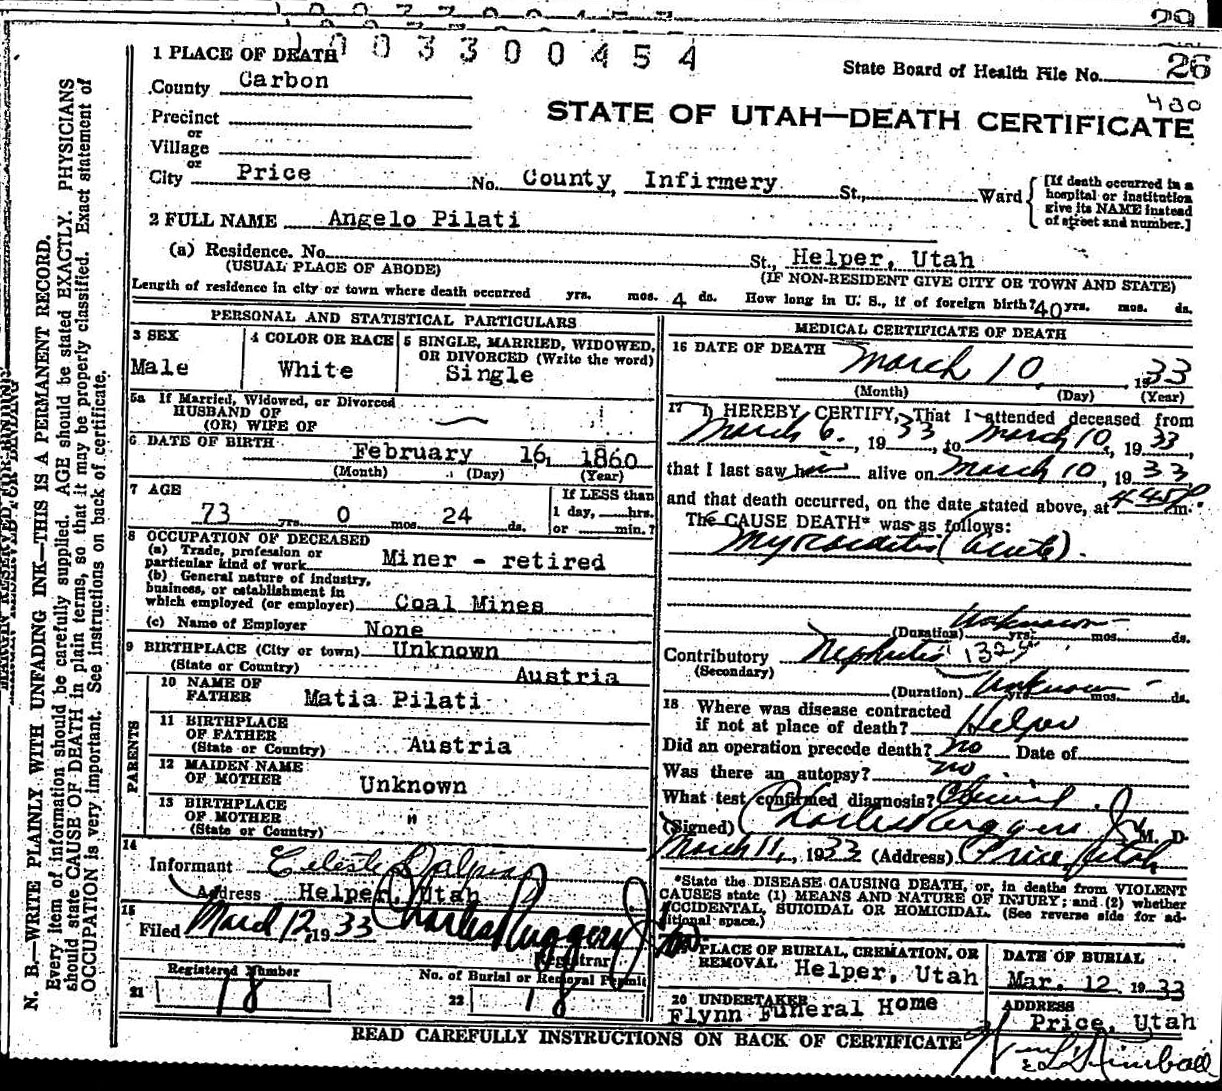 29
1003300454
1 PLACE OF DEATH
State Board of Health File No. 26
430
County Carbon
STATE OF UTAH—DEATH CERTIFICATE
Precinct
or
Village
or
City Price No. County Infirmery St., Ward
[If death occurred in a hospital or institution give its NAME instead of street and number.]
2 FULL NAME Angelo Pilati
(a) Residence. No. St., Helper, Utah
(USUAL PLACE OF ABODE) (IF NON-RESIDENT GIVE CITY OR TOWN AND STATE)
Length of residence in city or town where death occurred yrs. mos. 4 ds. How long in U. S., if of foreign birth? 40 yrs. mos. ds.
PERSONAL AND STATISTICAL PARTICULARS
3 SEX
Male
4 COLOR OR RACE
White
5 SINGLE, MARRIED, WIDOWED,
OR DIVORCED (Write the word)
Single
5a If Married, Widowed, or Divorced
HUSBAND OF
(OR) WIFE OF
6 DATE OF BIRTH
February 16, 1860
(Month) (Day) (Year)
7 AGE
73 yrs. 0 mos. 24 ds.
If LESS than
1 day, hrs.
or min.?
8 OCCUPATION OF DECEASED
(a) Trade, profession or
particular kind of work Miner - retired
(b) General nature of industry,
business, or establishment in
which employed (or employer) Coal Mines
(c) Name of Employer None
9 BIRTHPLACE (City or town) Unknown
(State or Country) Austria
PARENTS
10 NAME OF
FATHER Matia Pilati
11 BIRTHPLACE
OF FATHER
(State or Country) Austria
12 MAIDEN NAME
OF MOTHER Unknown
13 BIRTHPLACE
OF MOTHER "
(State or Country)
14
Informant Celeste Dalpiaz
Address Helper, Utah
15
Filed March 12, 1933 Charles Ruggeri Jr
Registrar
Registered Number
21 18
No. of Burial or Removal Permit
22 18
MEDICAL CERTIFICATE OF DEATH
16 DATE OF DEATH March 10, 1933
(Month) (Day) (Year)
17 I HEREBY CERTIFY, That I attended deceased from
March 6, 1933, to March 10, 1933,
that I last saw him alive on March 10, 1933
and that death occurred, on the date stated above, at 4:45 P m.
The CAUSE DEATH* was as follows:
Myocarditis (acute).
(Duration) Unknown yrs. mos. ds.
Contributory Nephritis 132
(Secondary)
(Duration) Unknown yrs. mos. ds.
18 Where was disease contracted
if not at place of death? Helper
Did an operation precede death? no Date of
Was there an autopsy? no
What test confirmed diagnosis? Clinical
(Signed) Charles Ruggeri Jr M. D.
March 11, 1933 (Address) Price, Utah
*State the DISEASE CAUSING DEATH, or, in deaths from VIOLENT
CAUSES state (1) MEANS AND NATURE OF INJURY; and (2) whether
ACCIDENTAL, SUICIDAL OR HOMICIDAL. (See reverse side for ad-
ditional space.)
PLACE OF BURIAL, CREMATION, OR
REMOVAL Helper, Utah
DATE OF BURIAL
Mar. 12 1933
20 UNDERTAKER
Flynn Funeral Home
ADDRESS
Price, Utah
READ CAREFULLY INSTRUCTIONS ON BACK OF CERTIFICATE
Kimball
N. B.—WRITE PLAINLY WITH UNFADING INK—THIS IS A PERMANENT RECORD.
Every item of information should be carefully supplied. AGE should be stated EXACTLY. PHYSICIANS
should state CAUSE OF DEATH in plain terms, so that it may be properly classified. Exact statement of
OCCUPATION is very important. See instructions on back of certificate.